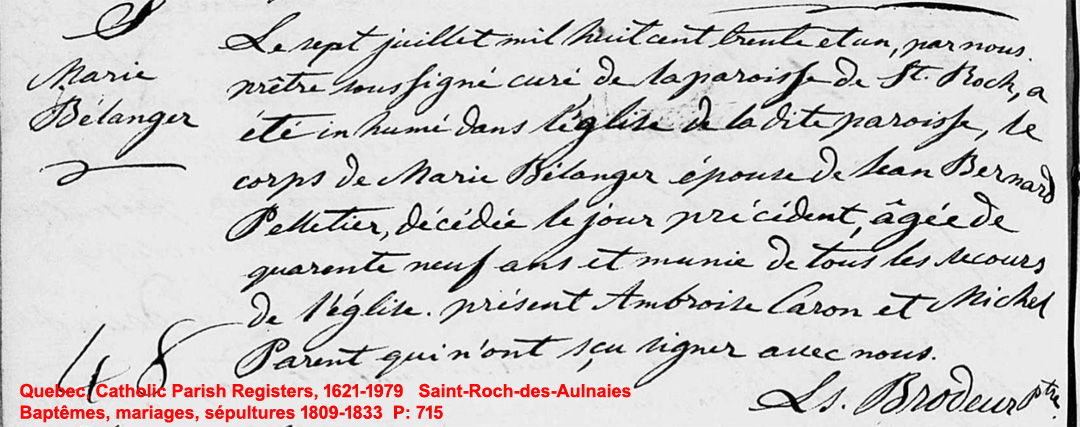 S
Marie
Bélanger
Le sept juillet mil huit cent trente et un, par nous
prêtre soussigné curé de la paroisse de St. Roch, a
été inhumé dans l'église de la dite paroisse, le
corps de Marie Bélanger épouse de Jean Bernard
Pelletier, décédée le jour précédent, âgée de
quarente neuf ans et munie de tous les secours
de l'église. présent Ambroise Caron et Michel
Parent qui n'ont sçu signer avec nous.
Ls. Brodeur Ptre.
48
Quebec, Catholic Parish Registers, 1621-1979 Saint-Roch-des-Aulnaies
Baptêmes, mariages, sépultures 1809-1833 P: 715